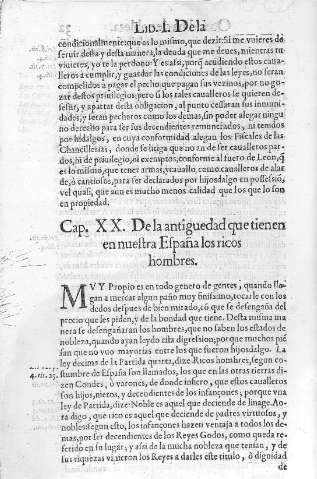 Lib. I. De la
condicionalmente: que es lo mismo, que dezir: si me vuieres de
seruir desta y desta manera, la deuda que me deues, mientras tu
viuieres, yo te la perdono: Y es assi, porq̃ acudiendo estos caualle
ros a cumplir, y guardar las condiciones de las leyes, no seran
compelidos a pagar el pecho que pagan sus vezinos, por no go
zar destos priuilegios: pero si los tales caualleros se quieren de-
sistir, y apartar desta obligacion, al punto cessaran sus inmuni
dades, y seran pecheros como los demas, sin poder alegar ningu
no derecho para ser sus decendientes enunciados, ni tenidos
por hidalgos, en cuya conformidad alegan los Fiscales de las
Chancillerias, donde se litiga que no an de ser caualleros par-
dos, ni de priuilegio, ni exemptos, conforme al fuero de Leon, q̃
es lo mismo, que tener armas, y cauallo, como caualleros de alar
de, ò cantiosos, para ser declarados por hijosdalgo en possessiõ,
vel quasi, que aun es mucho menos calidad que los que lo son
en propiedad.
Cap. XX. De la antiguedad que tienen
en nuestra España los ricos
hombres.
MVY Propio es en todo genero de gentes, quando lle
gan a mercar algun paño muy finissimo, tocarle con los
dedos despues de bien mirado, cõ que se desengaña del
precio que les piden, y de la bondad que tiene. Desta misma ma
nera se desengañaran los hombres, que no saben los estados de
nobleza, quando ayan leydo esta digression; porque muchos piẽ
san que no vuo mayorias entre los que fueron hijosdalgo. La
ley decima de la Partida quarta, dize: Ricos hombres, segun cos
tumbre de España son llamados, los que en las otras tierras di
zen Condes, ò varones, de donde infiero, que estos caualleros
son hijos, nietos, y decendientes de los infançones, porque vna
ley de Partida, dize: Noble es aquel que deciende de linage. Aora
digo, que rico es aquel que deciende de padres virtuosos, y
nobles: segun esto, los infançones hazen ventaja a todos los de
mas, por ser decendientes de los Reyes Godos, como queda re
ferido en su lugar; y assi de la mucha nobleza que tenian, y de
sus riquezas vinieron los Reyes a darles este titulo, ò dignidad
de